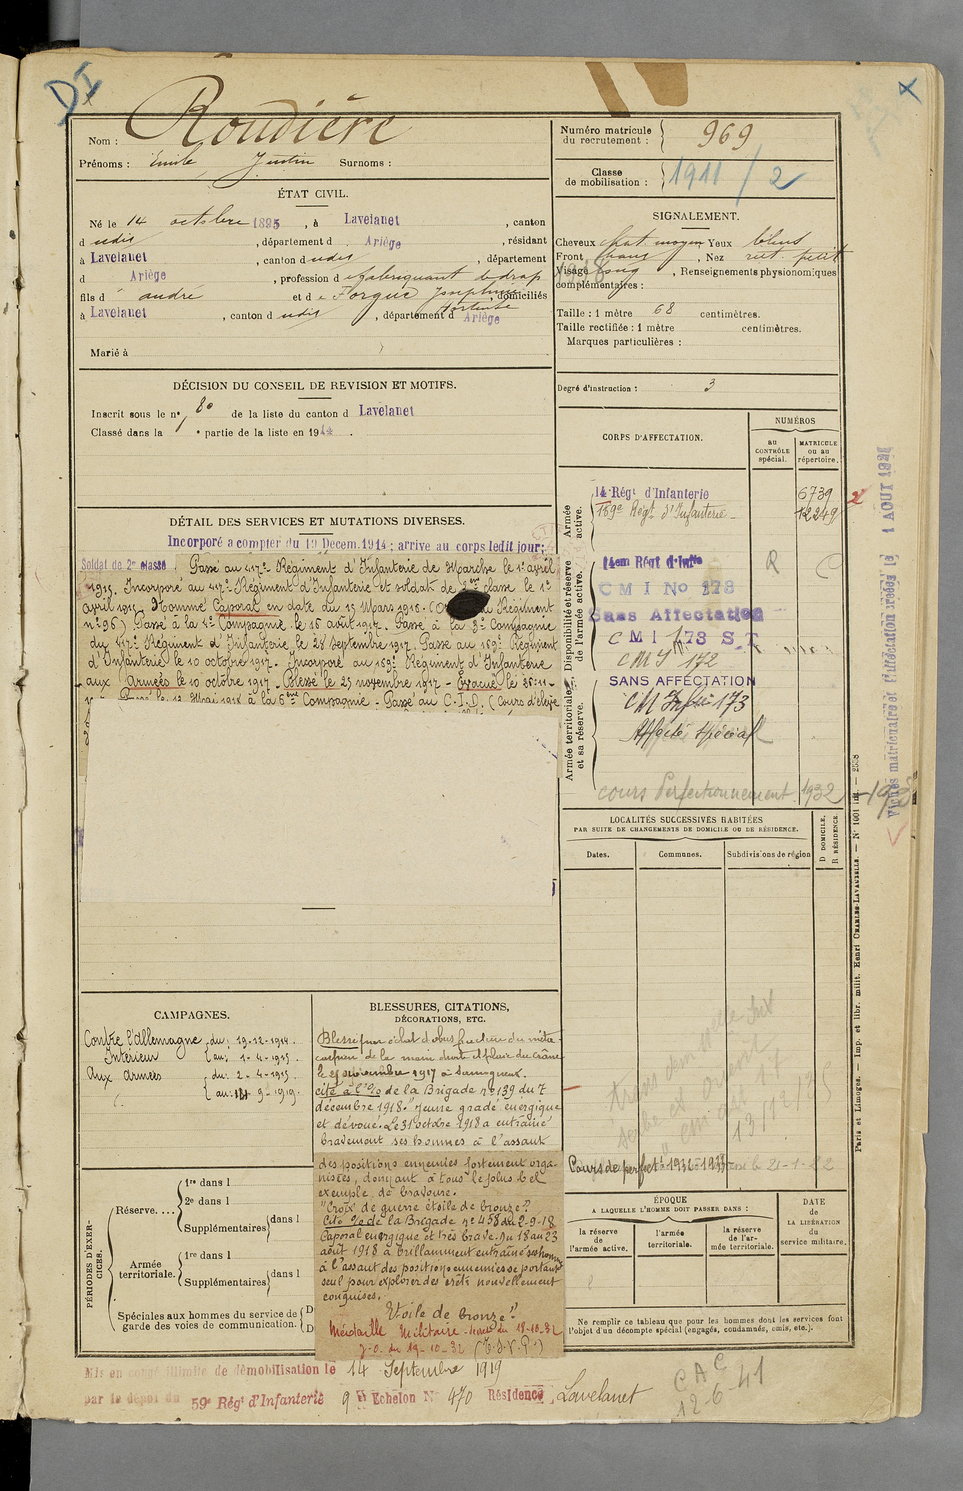 D I
Nom : Roudière
Prénoms : Emile Justin Surnoms :
Numéro matricule du recrutement : 969
Classe de mobilisation : 1911 / 2
ÉTAT CIVIL.
Né le 14 octobre 1895, à Lavelanet, canton
d udis, département d Ariège, résidant
à Lavelanet, canton d udis, département
d Ariège, profession de fabriquant de drap
fils d André et de Forgue Josephine, domiciliés
à Lavelanet, canton d udis, département d Ariège
Marié à
SIGNALEMENT.
Cheveux chat. moyen Yeux bleus
Front, Nez rect. petit
Visage long, Renseignements physionomiques
complémentaires :
Taille : 1 mètre 68 centimètres.
Taille rectifiée : 1 mètre centimètres.
Marques particulières :
Degré d'instruction : 3
DÉCISION DU CONSEIL DE REVISION ET MOTIFS.
Inscrit sous le n° 80 de la liste du canton d Lavelanet
Classé dans la 1 e partie de la liste en 1914.
CORPS D'AFFECTATION.
NUMÉROS
AU CONTRÔLE spécial.
MATRICULE ou au répertoire.
Armée active.
14 Régt d'Infanterie 6739
159e Régt d'Infanterie 12249
Disponibilité et réserve de l'armée active.
14em Régt d'Inf
C M I No 178
Sans Affectation
C M I 173 S.T
CMI 172
SANS AFFECTATION
Armée territoriale et sa réserve.
CM Inf 173
Affecté spécial
Cours Perfectionnement 1932 -1933
DÉTAIL DES SERVICES ET MUTATIONS DIVERSES.
Incorporé a compter du 19 Décem. 1914 ; arrive au corps ledit jour;
Soldat de 2e classe Passé au 417e Régiment d'Infanterie de Marche le 1er avril
1915. Incorporé au 417e Régiment d'Infanterie et soldat de 1ère classe le 1er
avril 1915. Nommé Caporal en date du 15 Mars 1916. (Or Régiment
n° 96) Passé à la 4e Compagnie le 16 août 1917. Passé à la 3e Compagnie
du 417e Régiment d'Infanterie le 28 Septembre 1917. Passé au 159e Régiment
d'Infanterie le 10 octobre 1917. Incorporé au 159e Régiment d'Infanterie
aux Armées le 10 octobre 1917 - Blessé le 25 novembre 1917 - Evacué le 25-11-
Passé le 12 Mai 1918 à la 6ème Compagnie - Passé au C.I.D. (Cours d'élève
LOCALITÉS SUCCESSIVES HABITÉES
PAR SUITE DE CHANGEMENTS DE DOMICILE OU DE RÉSIDENCE.
Dates.
Communes.
Subdivisions de région
D DOMICILE. R RÉSIDENCE.
CAMPAGNES.
Contre l'Allemagne du : 19-12-1914.
Intérieur au : 1-4-1915.
Aux Armées du : 2-4-1915.
au : 9-1919.
BLESSURES, CITATIONS,
DÉCORATIONS, ETC.
Blessé par éclat d'obus fracture du méta-
carpien de la main droite et plaie du crâne
le 25 novembre 1917 à Samogneux.
cité à l'o de la Brigade n° 139 du 7
décembre 1918. "Jeune gradé énergique
et dévoué. Le 31 octobre 1918 a entraîné
bravement ses hommes à l'assaut
des positions ennemies fortement orga-
nisées, donnant à tous le plus bel
exemple de bravoure.
"Croix de guerre étoile de bronze"
Cité o de la Brigade n° 458 du 2-9-18
Caporal énergique et très brave. Du 18 au 23
août 1918 a brillamment entraîné ses hommes
à l'assaut des positions ennemies se portant
seul pour explorer des crêtes nouvellement
conquises.
Etoile de bronze"
Médaille Militaire du 18-10-32
J.O. du 19-10-32
Cours de perfect 1932-1933
13/12/35
PÉRIODES D'EXERCICES.
Réserve....
1re dans l
2e dans l
Supplémentaires dans l
Armée territoriale.
1re dans l
Supplémentaires dans l
Spéciales aux hommes du service de garde des voies de communication. D D
ÉPOQUE
A LAQUELLE L'HOMME DOIT PASSER DANS :
la réserve de l'armée active.
l'armée territoriale.
la réserve de l'armée territoriale.
DATE de LA LIBÉRATION du service militaire.
Ne remplir ce tableau que pour les hommes dont les services font
l'objet d'un décompte spécial (engagés, condamnés, omis, etc.).
Mis en congé illimité de démobilisation le 14 Septembre 1919
par le dépôt du 59e Régt d'Infanterie 9 e Echelon N° 470 Résidence Lavelanet
CAC
12-6-41
Fiches matriculaire et d'affectation créées le 1 AOUT 1921
Paris et Limoges. — Imp. et libr. milit. Henri CHARLES-LAVAUZELLE. — N° 1001